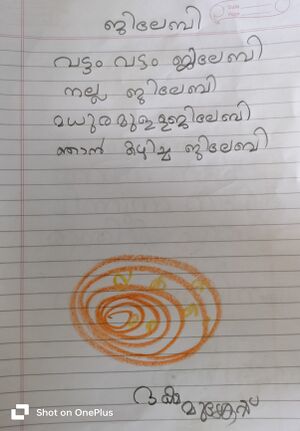 ജിലേബി
വട്ടം വട്ടം ജിലേബി
നല്ല ജിലേബി
മധുരമുള്ളജിലേബി
ഞാൻ കഴിച്ച ജിലേബി
Shot on OnePlus